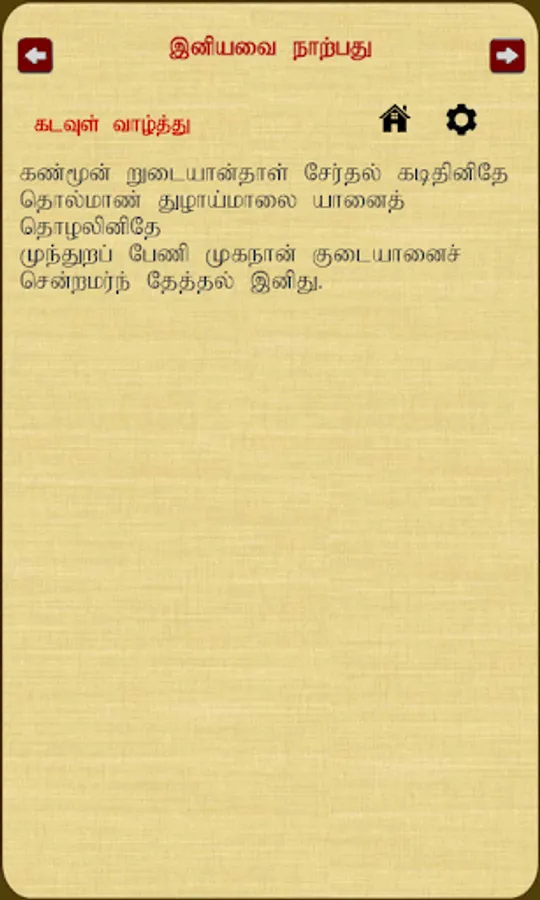 இனியவை நாற்பது
கடவுள் வாழ்த்து
கண்மூன் றுடையான்தாள் சேர்தல் கடிதினிதே
தொல்மாண் துழாய்மாலை யானைத்
தொழலினிதே
முந்துறப் பேணி முகநான் குடையானைச்
சென்றமர்ந் தேத்தல் இனிது.